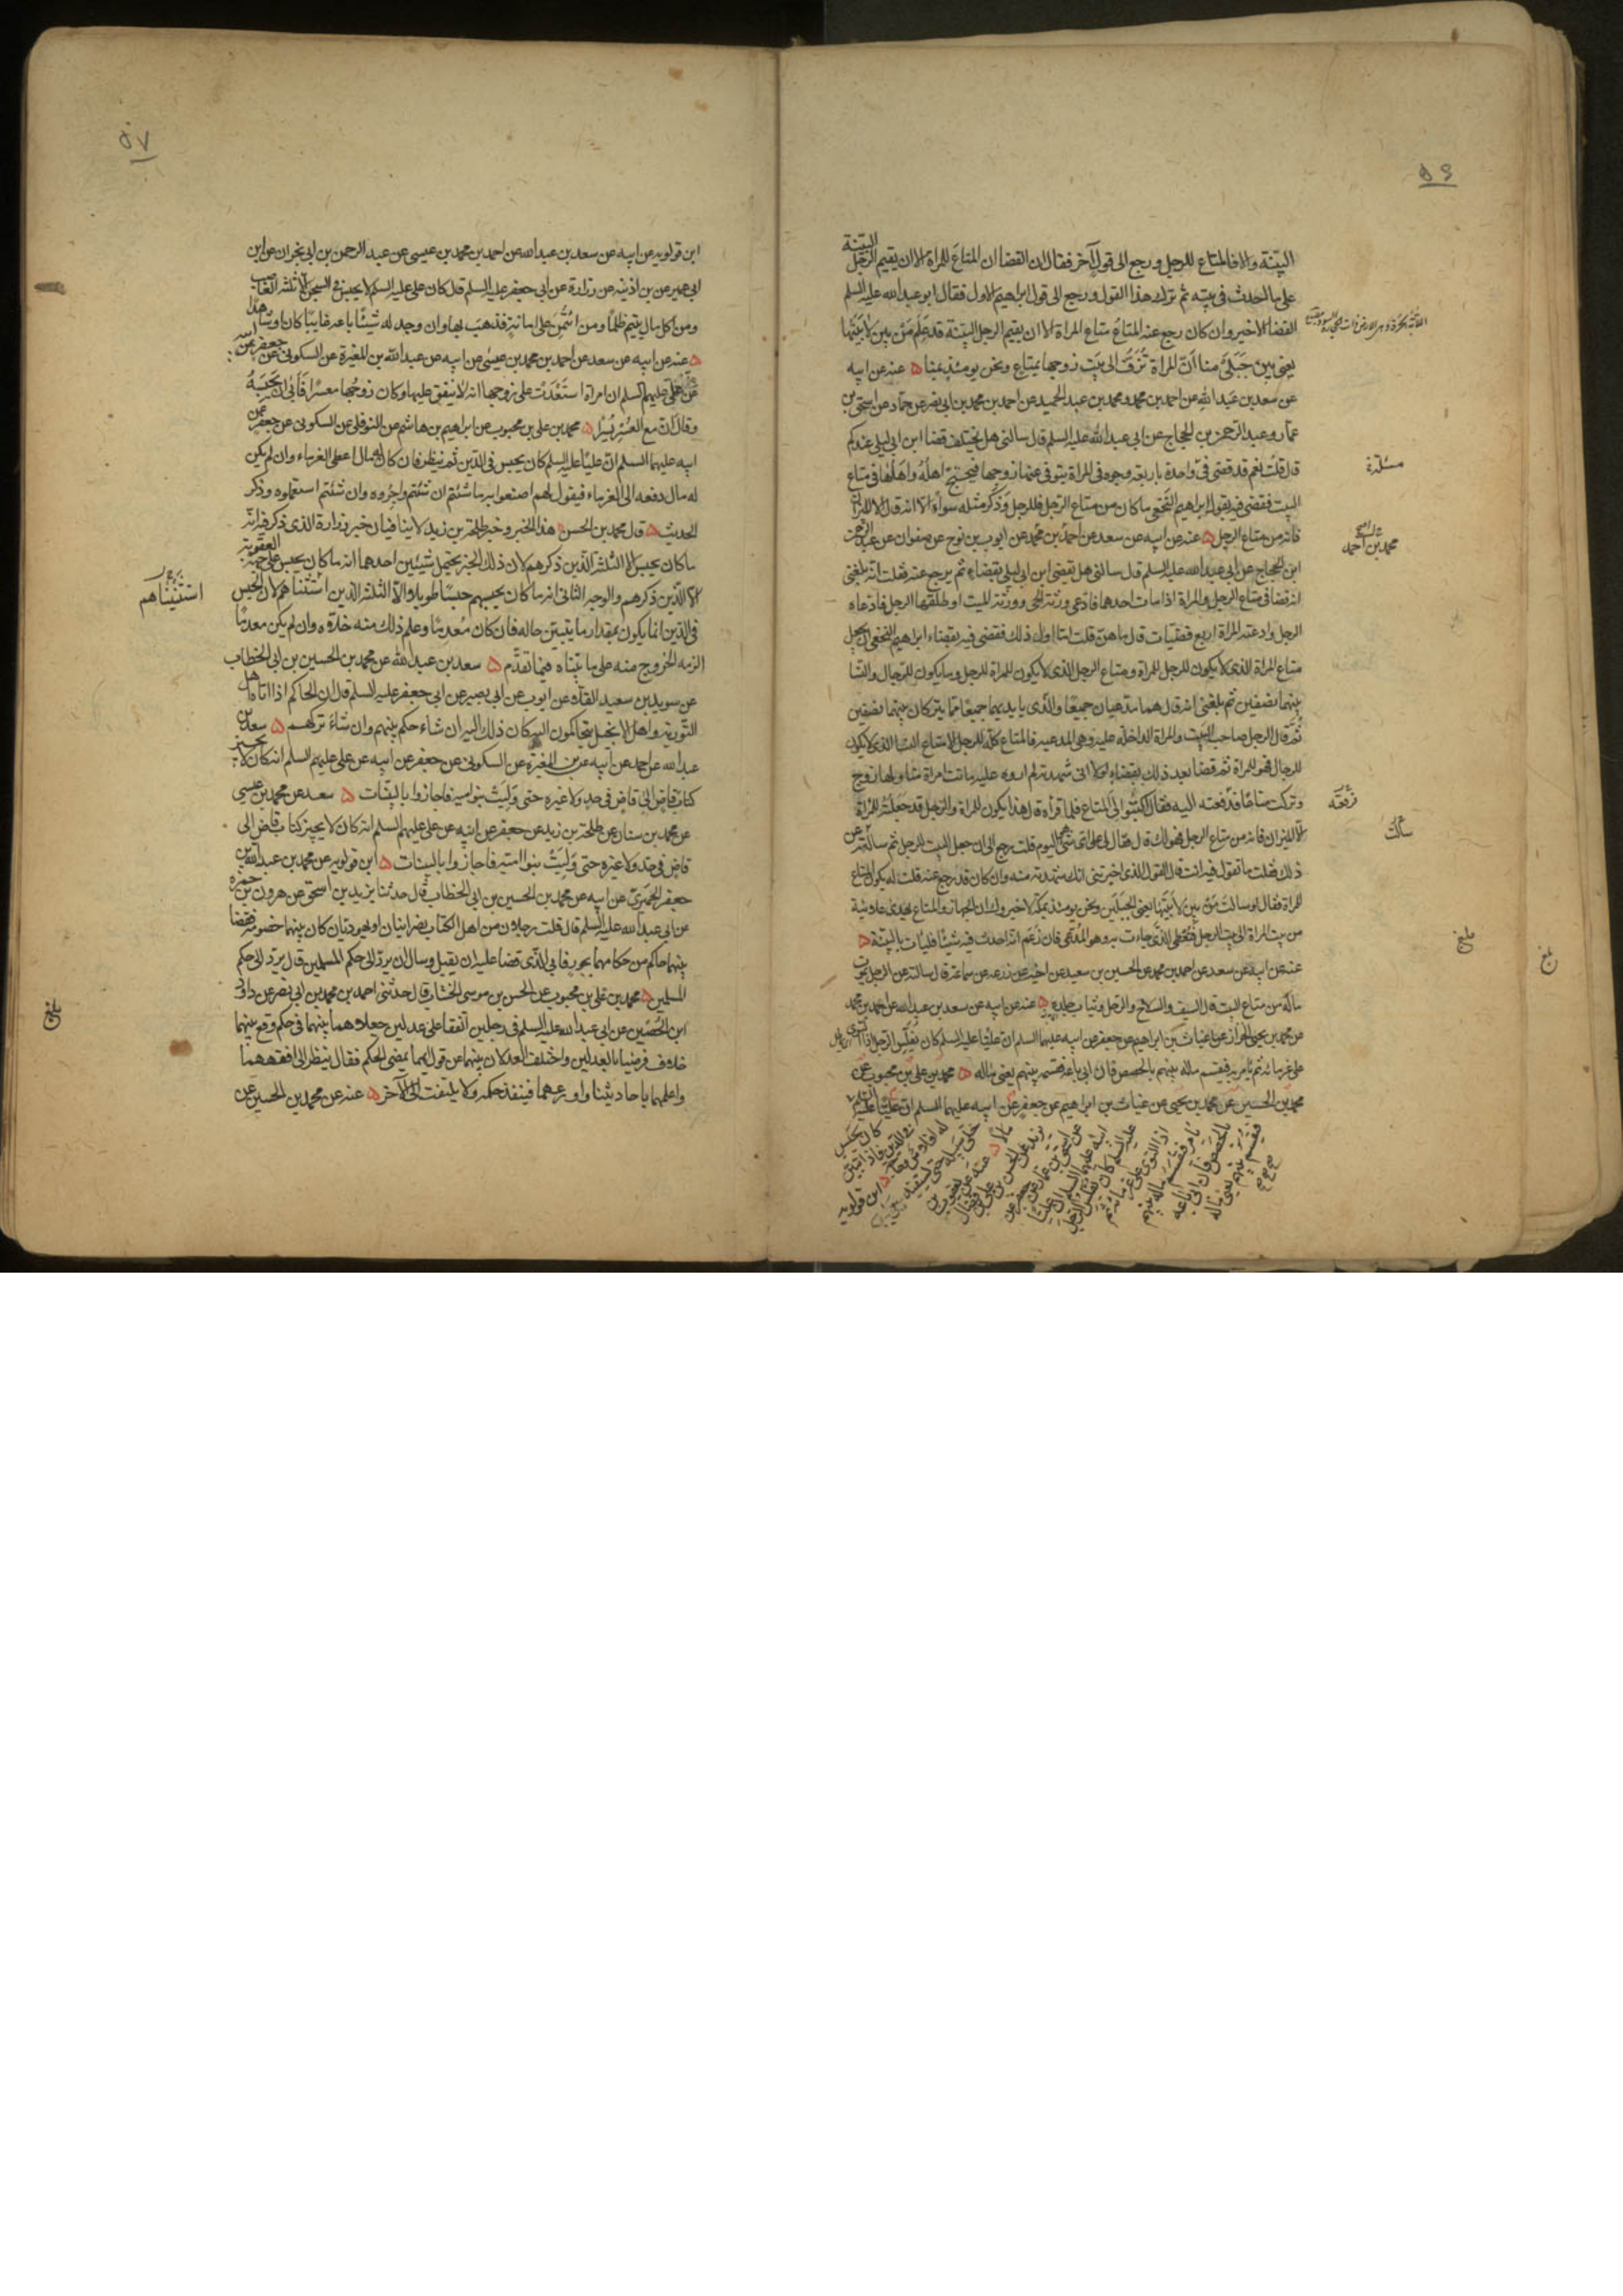 ٥٦
البيّنة والا فالمتاع للرجل ورجع الى قول آخر فقال ان القضا ان المتاع للمراة الا ان يقيم الرجل البيّنة
على ما احدث فى بيته ثم ترك هذا القول ورجع الى قول ابراهيم الاول فقال ابو عبد الله عليه السلم
القضا الاخير وان كان رجع عنه المتاع متاع المراة الا ان يقيم الرجل البيّنة قد علم من بين لابتيها
يعنى بين جبلى منا ان المراة تزف الى بيت زوجها بمتاع ونحن يومئذ بمنا ه عنه عن ابيه
عن سعد بن عبد الله عن احمد بن محمد ومحمد بن عبد الحميد عن احمد بن محمد بن ابى نصر عن حماد عن اسحق بن
عمار وعبد الرحمن بن الحجاج عن ابى عبد الله عليه السلم قال سالنى هل يختلف قضا ابن ابى ليلى عندكم
قال قلت نعم قد قضى فى واحدة باربعة وجوه فى المراة يتوفى عنها زوجها فيحتج اهله واهلها فى متاع
البيت فقضى فيه بقول ابراهيم النخعى ما كان من متاع الرجل فللرجل وذكر مثله سواء الا انه قال الا الميزان
فانه من متاع الرجل ه عنه عن ابيه عن سعد عن احمد بن محمد عن ايوب بن نوح عن صفوان عن عبد الرحمن
ابن الحجاج عن ابى عبد الله عليه السلم قال سالنى هل يقضى ابن ابى ليلى بقضاء ثم يرجع عنه فقلت انه بلغنى
انه قضا فى متاع الرجل والمراة اذا مات احدهما فادعى ورثة الحى وورثة الميت او طلقها الرجل فادعاه
الرجل وادعته المراة اربع قضيات قال ما هن قلت اما اول ذلك فقضى فيه بقضاء ابراهيم النخعى ان يجعل
متاع المراة الذى لا يكون للرجل للمراة ومتاع الرجل الذى لا يكون للمراة للرجل وما يكون للرجال والنسا
بينهما نصفين ثم بلغنى انه قال هما مدعيان جميعا والذى بايديهما جميعا مما يتركان بينهما نصفين
ثم قال الرجل صاحب البيت والمراة الداخلة عليه وهى المدعيه فالمتاع كله للرجل الا متاع النسا الذى لا يكون
للرجال فهو للمراة ثم قضا بعد ذلك بقضاء لولا انى شهدته لم اروه عليه ماتت امراة منا ولها زوج
وتركت متاعا فدفعته اليه فقال اكتبوا الى المتاع فلما قراه قال هذا يكون للمراة والرجل قد جعلته للمراة
الا الميزان فانه من متاع الرجل فهو لك قال فقال لى على اى شى هو اليوم قلت رجع الى ان جعل البيت للرجل ثم سالته عن
ذلك فقلت ما تقول فيه انت قال القول الذى اخبرتنى انك شهدته منه وان كان قد رجع عنه قلت له يكون المتاع
للمراة فقال لو سالت من بين لابتيها يعنى الجبلين ونحن يومئذ بمكة لاخبروك ان الجهاز والمتاع يهدى علانية
من بيت المراة الى بيت الرجل فتعطى الذى جاءت به وهو المدعى فان زعم انه احدث فيه شيئا فليات بالبينة ه
عنه عن ابيه عن سعد عن احمد بن محمد عن الحسين بن سعيد عن اخيه عن زرعه عن سماعة قال سالته عن الرجل يموت
ماله من متاع البيت قال السيف والسلاح والرحل وثياب جلده ه عنه عن ابيه عن سعد بن عبد الله عن احمد بن محمد
عن محمد بن يحيى الخزاز عن غياث بن ابراهيم عن جعفر عن ابيه عليهما السلم ان عليا عليه السلم كان يفلس الرجل اذا التوى
على غرمائه ثم يامر به فيقسم ماله بينهم بالحصص فان ابى باعه فقسمه بينهم يعنى ماله ه محمد بن على بن محبوب عن
محمد بن الحسين عن محمد بن يحيى عن غياث بن ابراهيم عن جعفر عن ابيه عليهما السلم ان عليا عليه السلم
مسئلة
محمد بن احمد
سالت
بلغ
٥٧
ابن قولويه عن ابيه عن سعد بن عبد الله عن احمد بن محمد بن عيسى عن عبد الرحمن بن ابى نجران عن ابن
ابى عمير عن بن اذينه عن زرارة عن ابى جعفر عليه السلم قال كان على عليه السلم لا يحبس فى السجن الا ثلثه الغاصب
ومن اكل مال يتيم ظلما ومن ائتمن على امانة فذهب بها وان وجد له شيئا باعه غايبا كان او شاهدا
ه عنه عن ابيه عن سعد عن احمد بن محمد بن عيسى عن ابيه عن عبد الله بن المغيرة عن السكونى عن جعفر عن ابيه
عن على عليهم السلم ان امراة استعدت على زوجها انه لا ينفق عليها وكان زوجها معسرا فابى ان يحبسه
وقال ان مع العسر يسرا ه محمد بن على بن محبوب عن ابراهيم بن هاشم عن النوفلى عن السكونى عن جعفر عن
ابيه عليهما السلم ان عليا عليه السلم كان يحبس فى الدين ثم ينظر فان كان له مال اعطى الغرماء وان لم يكن
له مال دفعه الى الغرماء فيقول لهم اصنعوا به ما شئتم ان شئتم واجروه وان شئتم استعملوه وذكر
الحديث ه قال محمد بن الحسن هذا الخبر وخبر طلحة بن زيد لا ينافيان خبر زرارة الذى ذكر فيه انه
ما كان يحبس الا الثلثة الذين ذكرهم لان ذلك الخبر يحتمل شيئين احدهما انه ما كان يحبس على جهة العقوبة
الا الذين ذكرهم والوجه الثانى انه ما كان يحبسهم حبسا طويلا الا الثلثة الذين استثناهم لان الحبس
فى الدين انما يكون بمقدار ما يتبين حاله فان كان معدما وعلم ذلك منه خلاه وان لم يكن معدما
الزمه الخروج منه على ما بيناه فيما تقدم ه سعد بن عبد الله عن محمد بن الحسين بن ابى الخطاب
عن سويد بن سعيد القلاء عن ايوب عن ابى بصير عن ابى جعفر عليه السلم قال ان الحاكم اذا اتاه اهل
التورية واهل الانجيل يتحاكمون اليه كان ذلك اليه ان شاء حكم بينهم وان شاء تركهم ه سعد بن
عبد الله عن احمد عن ابيه عن بن المغيرة عن السكونى عن جعفر عن ابيه عن على عليهم السلم انه كان لا يجيز
كتاب قاض الى قاض فى حد ولا غيره حتى وليت بنو اميه فاجازوا بالبينات ه سعد عن محمد بن عيسى
عن محمد بن سنان عن طلحة بن زيد عن جعفر عن ابيه عن على عليهم السلم انه كان لا يجيز كتاب قاض الى
قاض فى حد ولا غيره حتى وليت بنو امية فاجازوا بالبينات ه ابن قولويه عن محمد بن عبد الله بن
جعفر الحميرى عن ابيه عن محمد بن الحسين بن ابى الخطاب قال حدثنا يزيد بن اسحق عن هرون بن حمزه
عن ابى عبد الله عليه السلم قال قلت رجلان من اهل الكتاب نصرانيان او يهوديان كان بينهما خصومة فقضا
بينهما حاكم من حكامهما بجور فابى الذى قضا عليه ان يقبل وسال ان يرد الى حكم المسلمين قال يرد الى حكم
المسلمين ه محمد بن على بن محبوب عن الحسن بن موسى الخشاب قال حدثنى احمد بن محمد بن ابى نصر عن داود
ابن الحصين عن ابى عبد الله عليه السلم فى رجلين اتفقا على عدلين جعلاهما بينهما فى حكم وقع بينهما
خلاف فرضيا بالعدلين واختلف العدلان بينهما عن قول ايهما يمضى الحكم فقال ينظر الى افقههما
واعلمهما باحاديثنا واورعهما فينفذ حكمه ولا يلتفت الى الآخر ه عنه عن محمد بن الحسين عن
استثنيناهم
بلغ